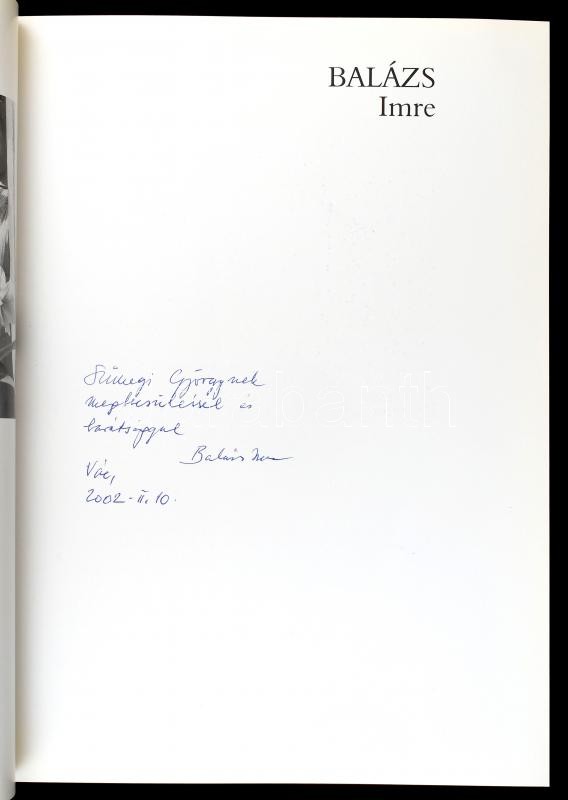 BALÁZS
Imre
Sümegi Györgynek
megbecsüléssel és
barátsággal
Balázs Imre
Vác,
2002-II. 10.